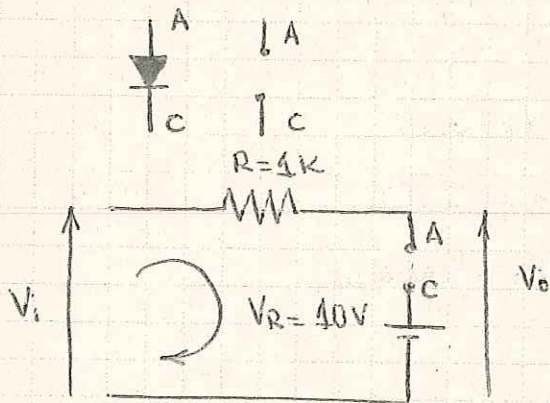 A A
C C
R=1K
A
C
Vi
VR=10V
Vo